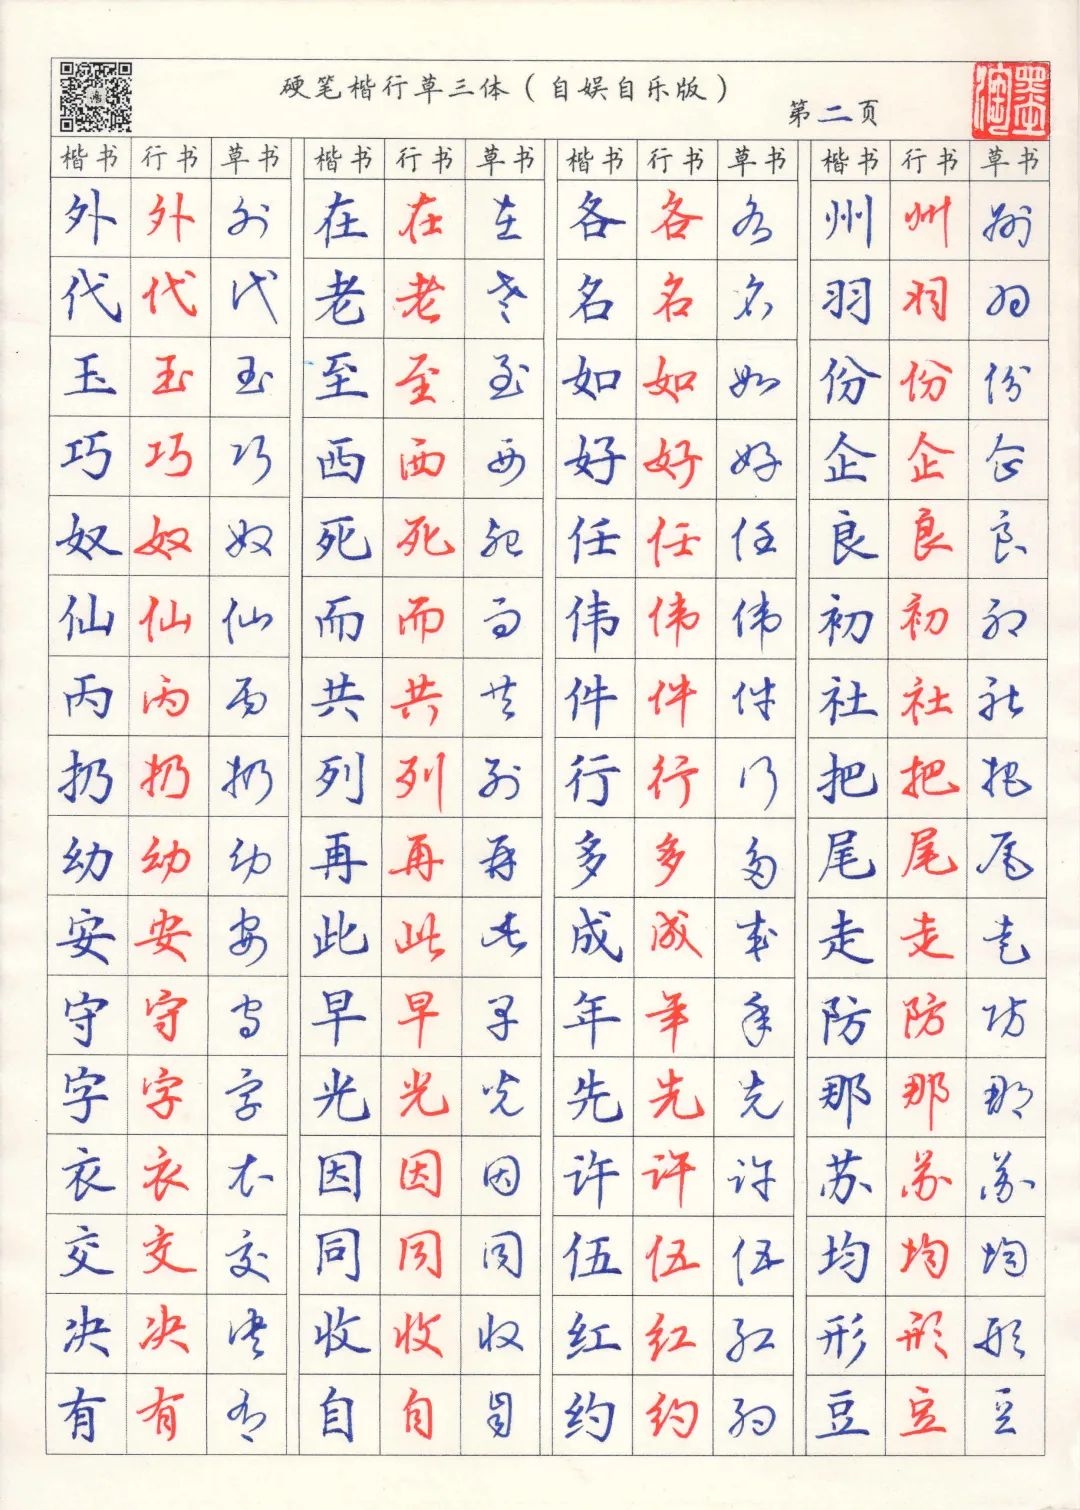 硬笔楷行草三体（自娱自乐版）
第二页
楷书 行书 草书 楷书 行书 草书 楷书 行书 草书 楷书 行书 草书
外 外 外 在 在 在 各 各 各 州 州 州
代 代 代 老 老 老 名 名 名 羽 羽 羽
玉 玉 玉 至 至 至 如 如 如 份 份 份
巧 巧 巧 西 西 西 好 好 好 企 企 企
奴 奴 奴 死 死 死 任 任 任 良 良 良
仙 仙 仙 而 而 而 伟 伟 伟 初 初 初
丙 丙 丙 共 共 共 件 件 件 社 社 社
扔 扔 扔 列 列 列 行 行 行 把 把 把
幼 幼 幼 再 再 再 多 多 多 尾 尾 尾
安 安 安 此 此 此 成 成 成 走 走 走
守 守 守 早 早 早 年 年 年 防 防 防
字 字 字 光 光 光 先 先 先 那 那 那
衣 衣 衣 因 因 因 许 许 许 苏 苏 苏
交 交 交 同 同 同 伍 伍 伍 均 均 均
决 决 决 收 收 收 红 红 红 形 形 形
有 有 有 自 自 自 约 约 约 豆 豆 豆